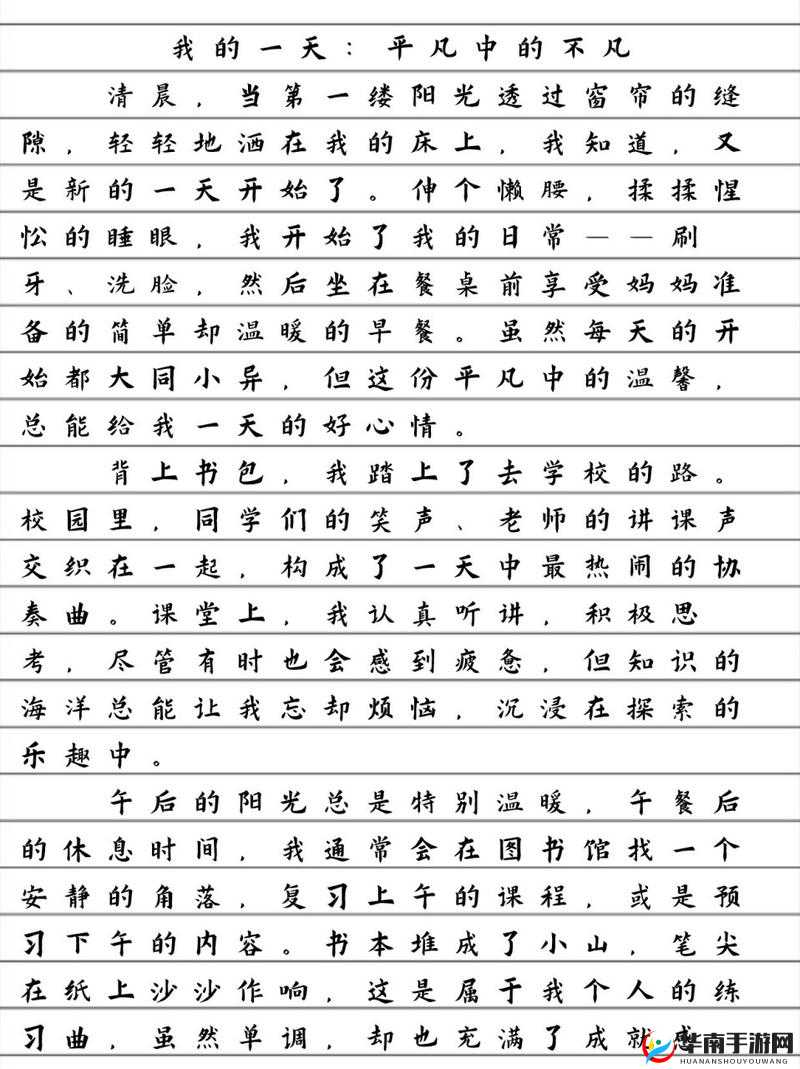 我的一天：平凡中的不凡
清晨，当第一缕阳光透过窗帘的缝
隙，轻轻地洒在我的床上，我知道，又
是新的一天开始了。伸个懒腰，揉揉惺
忪的睡眼，我开始了我的日常——刷
牙、洗脸，然后坐在餐桌前享受妈妈准
备的简单却温暖的早餐。虽然每天的开
始都大同小异，但这份平凡中的温馨，
总能给我一天的好心情。
背上书包，我踏上了去学校的路。
校园里，同学们的笑声、老师的讲课声
交织在一起，构成了一天中最热闹的协
奏曲。课堂上，我认真听讲，积极思
考，尽管有时也会感到疲惫，但知识的
海洋总能让我忘却烦恼，沉浸在探索的
乐趣中。
午后的阳光总是特别温暖，午餐后
的休息时间，我通常会在图书馆找一个
安静的角落，复习上午的课程，或是预
习下午的内容。书本堆成了小山，笔尖
在纸上沙沙作响，这是属于我个人的练
习曲，虽然单调，却也充满了成就感
华南手游网
HUANANSHOUYOUWANG